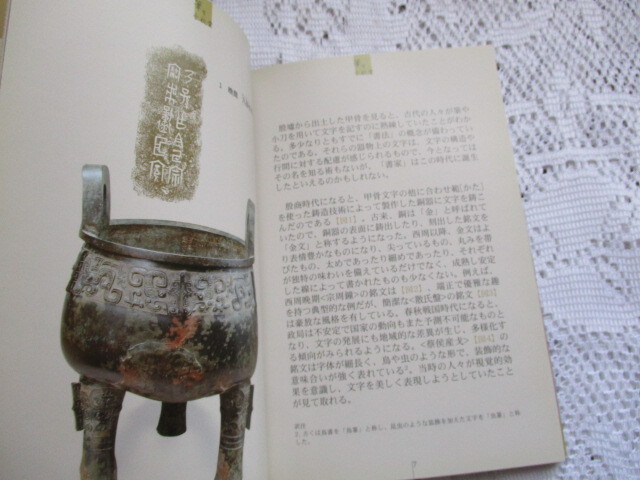 殷墟から出土した甲骨を見ると、古代の人々が筆や
小刀を用いて文字を記すのに熟練していたことがわか
る。多少なりともすでに「書法」の概念が備わってい
たのである。それらの器物上の文字は、文字の構造や
行間に対する配慮が感じられるもので、今となっては
その名を知る術もないが、「書家」はこの時代に誕生
したといえるのかもしれない。
殷商時代になると、甲骨文字の他に合わせ範（かた）
を使った鋳造技術によって製作した銅器に文字を鋳こ
んだのである【001】。古来、銅は「金」と呼ばれて
いたので、銅器の表面に鋳出したり、刻出した銘文を
「金文」と称するようになった。西周以降、金文はよ
り表情豊かなものになり、尖っているもの、丸みを帯
びたもの、太めであったり細めであったり、それぞれ
が独特の味わいを備えているだけでなく、成熟し安定
した線によって書かれたものも少なくない。例えば、
西周晩期<宗周鐘>の銘文は【002】、端正で優雅な趣
を持つ典型的な例だが、簡潔な<散氏盤>の銘文【003】
は豪放な風格を有している。春秋戦国時代になると、
政局は不安定で国家の動向もまた予測不可能なものな
り、文字の発展にも地域的な差異が生じ、多様化す
る傾向がみられるようになる。<蔡侯産戈>【004】の
銘文は字体が細長く、鳥や虫のような形で、装飾的な
意味合いが強く表れている¹。当時の人々が視覚的効
果を意識し、文字を美しく表現しようとしていたこと
が見て取れる。
訳注
1. 古くは鳥書を「鳥篆」と称し、昆虫のような装飾を加えた文字を「虫篆」と称
した。
7